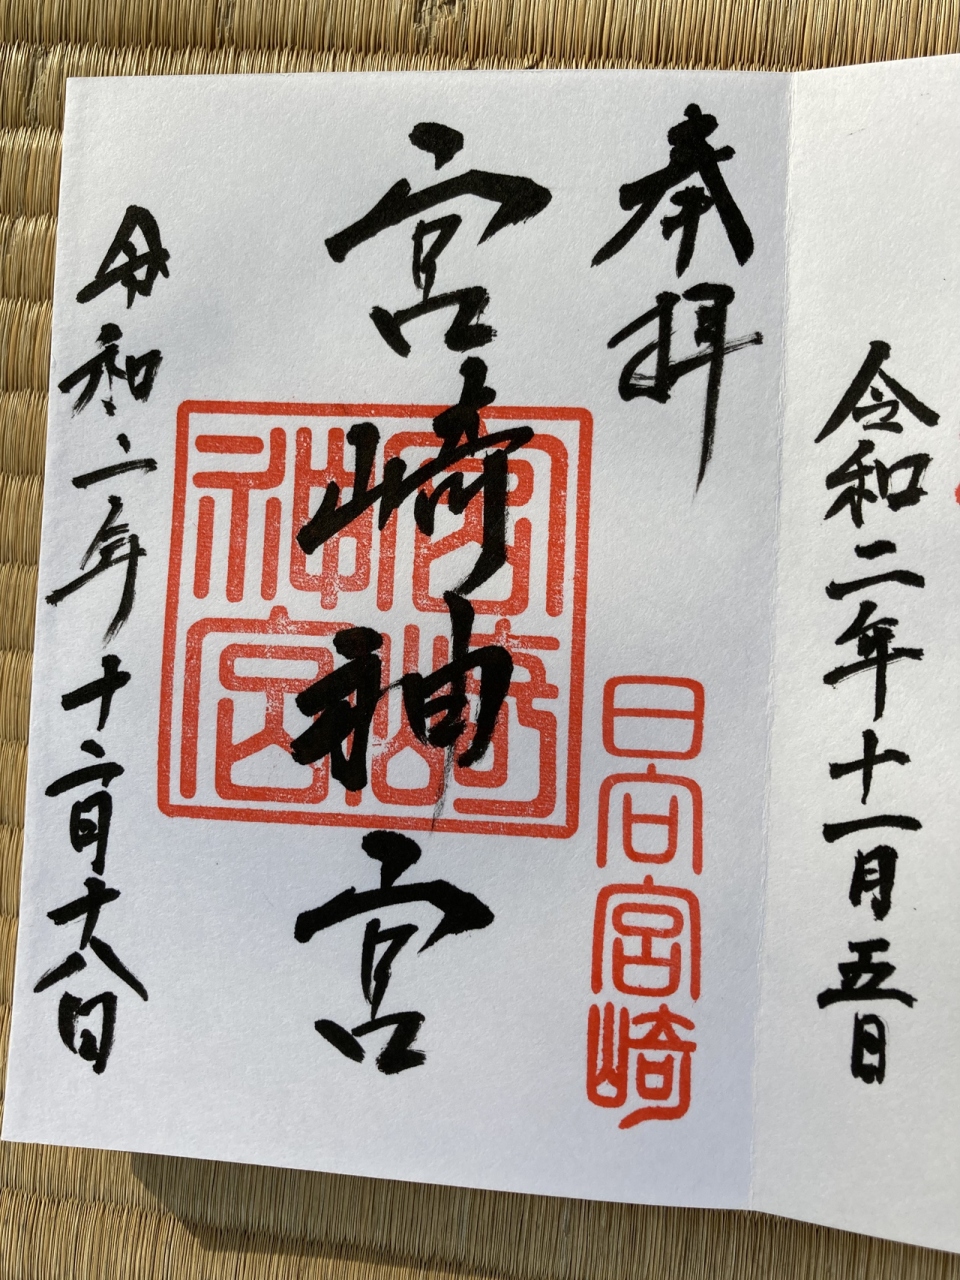 令和二年十一月五日
奉拝
日向宮崎
宮崎神宮
宮崎神宮
令和二年十二月十八日